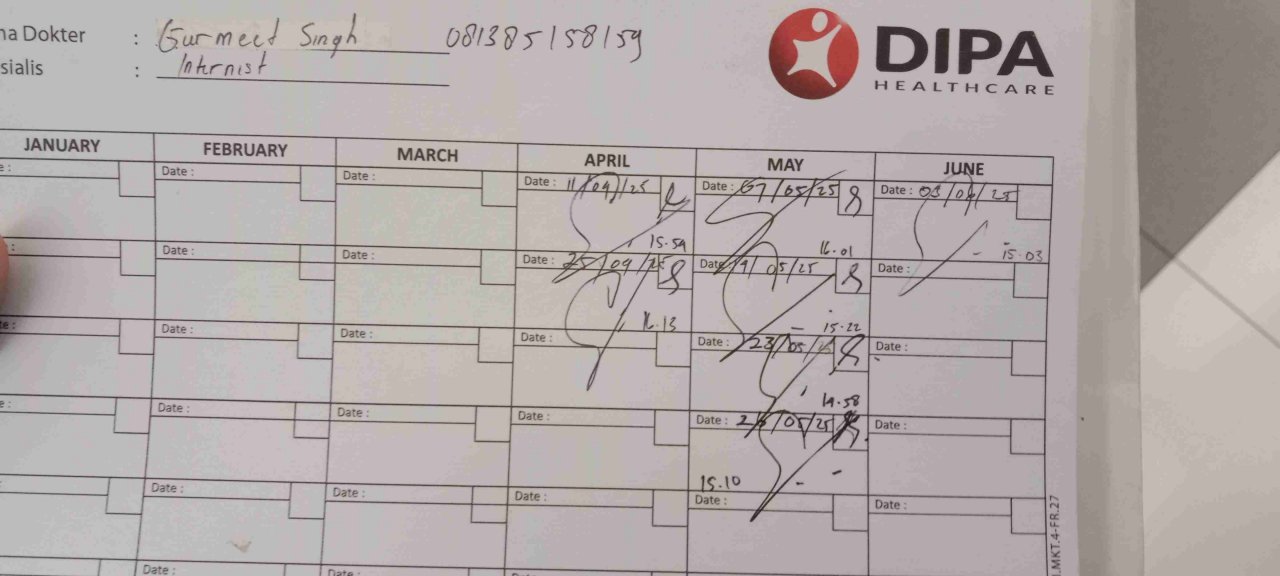 na Dokter : Gurmeet Singh 081385158159
sialis : Internist
DIPA
HEALTHCARE
JANUARY FEBRUARY MARCH APRIL MAY JUNE
e: Date : Date : Date : 11/04/25 Date : 07/05/25 Date : 03/06/25
15.59 16.01 15.03
: Date : Date : Date : 25/04/25 Date : 19/05/25 Date :
16.13 15.22
te : Date : Date : Date : Date : 23/05/25 Date :
14.58
e: Date : Date : Date : Date : 05/25 Date :
15.10
: Date : Date : Date : Date : Date :
Date : Date
.MKT.4-FR.27